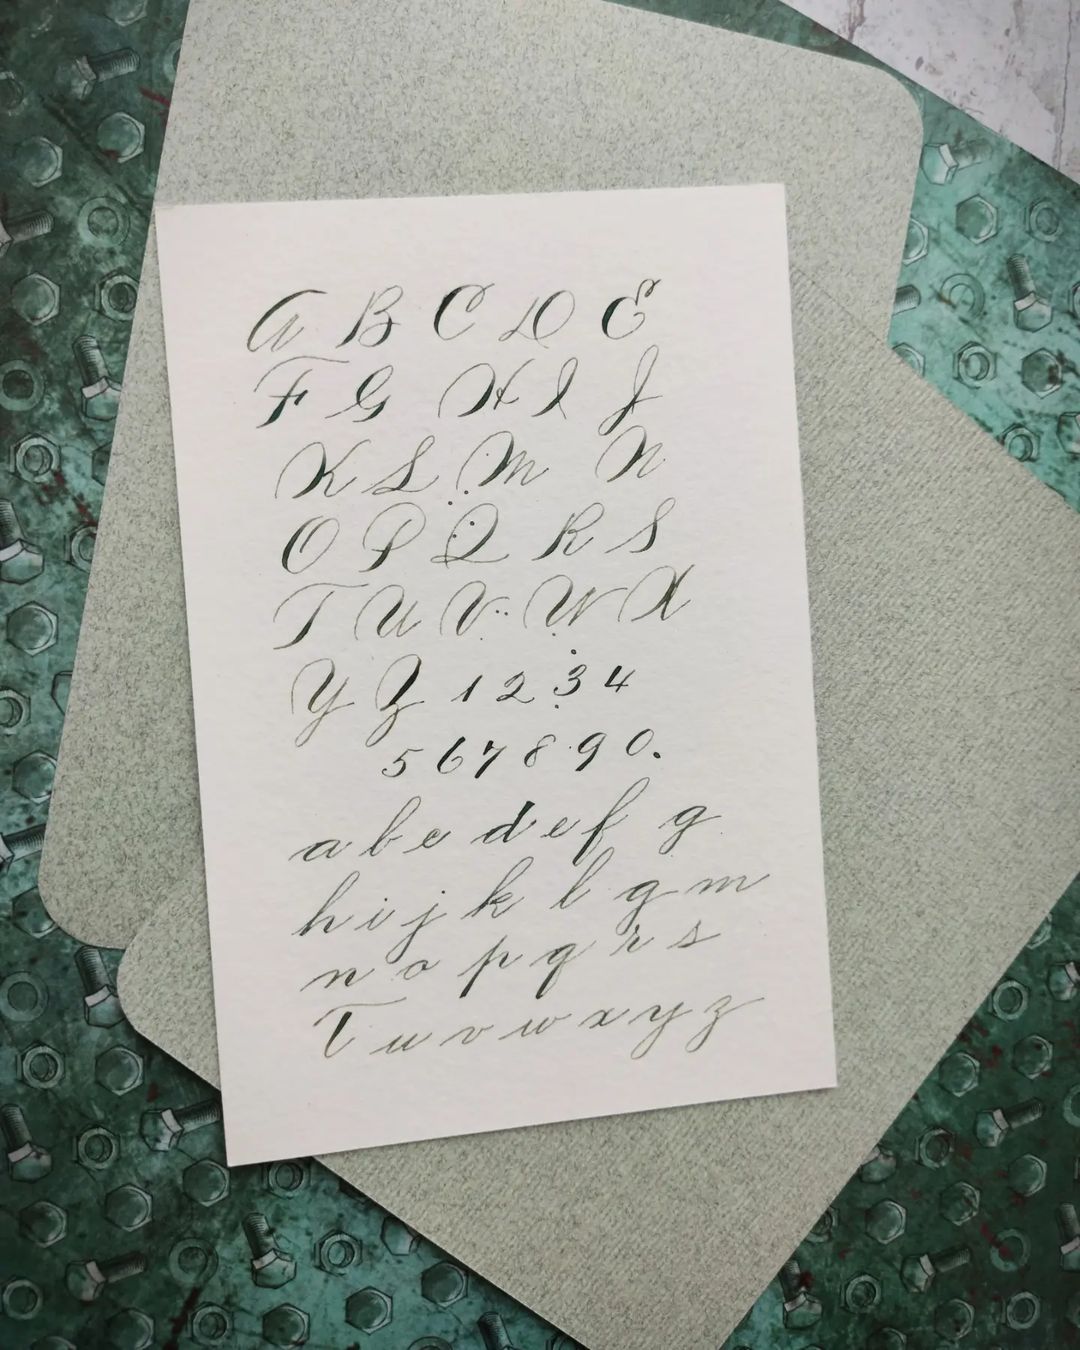 A B C D E
F G H I J
K L M N
O P Q R S
T U V W X
Y Z 1 2 3 4
5 6 7 8 9 0.
a b c d e f g
h i j k l g m
n o p q r s
T u v w x y z